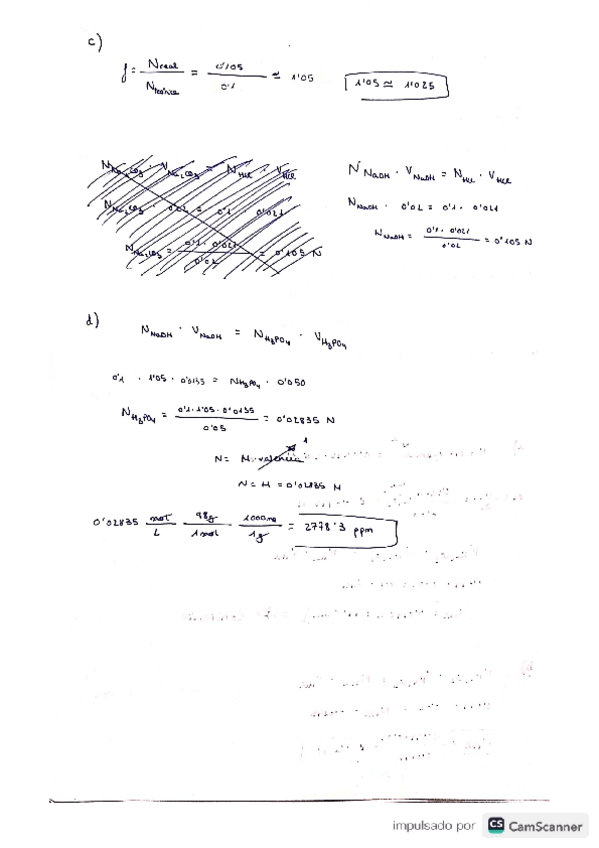 c)
f = N real / N teórica = 0'105 / 0'1 ≃ 1'05
1'05 ≃ 1'025
N Na2CO3 · V Na2CO3 = N HCl · V HCl
N Na2CO3 · 0'02 = 0'1 · 0'021
N Na2CO3 = 0'1 · 0'021 / 0'02 = 0'105 N
N NaOH · V NaOH = N HCl · V HCl
N NaOH · 0'02 = 0'1 · 0'021
N NaOH = 0'1 · 0'021 / 0'02 = 0'105 N
d)
N NaOH · V NaOH = N H3PO4 · V H3PO4
0'1 · 1'05 · 0'0135 = N H3PO4 · 0'050
N H3PO4 = 0'1 · 1'05 · 0'0135 / 0'05 = 0'02835 N
N = M · valencia 1
N = M = 0'02835 M
0'02835 mol / L 98g / 1 mol 1000mg / 1g = 2778'3 ppm
impulsado por CS CamScanner